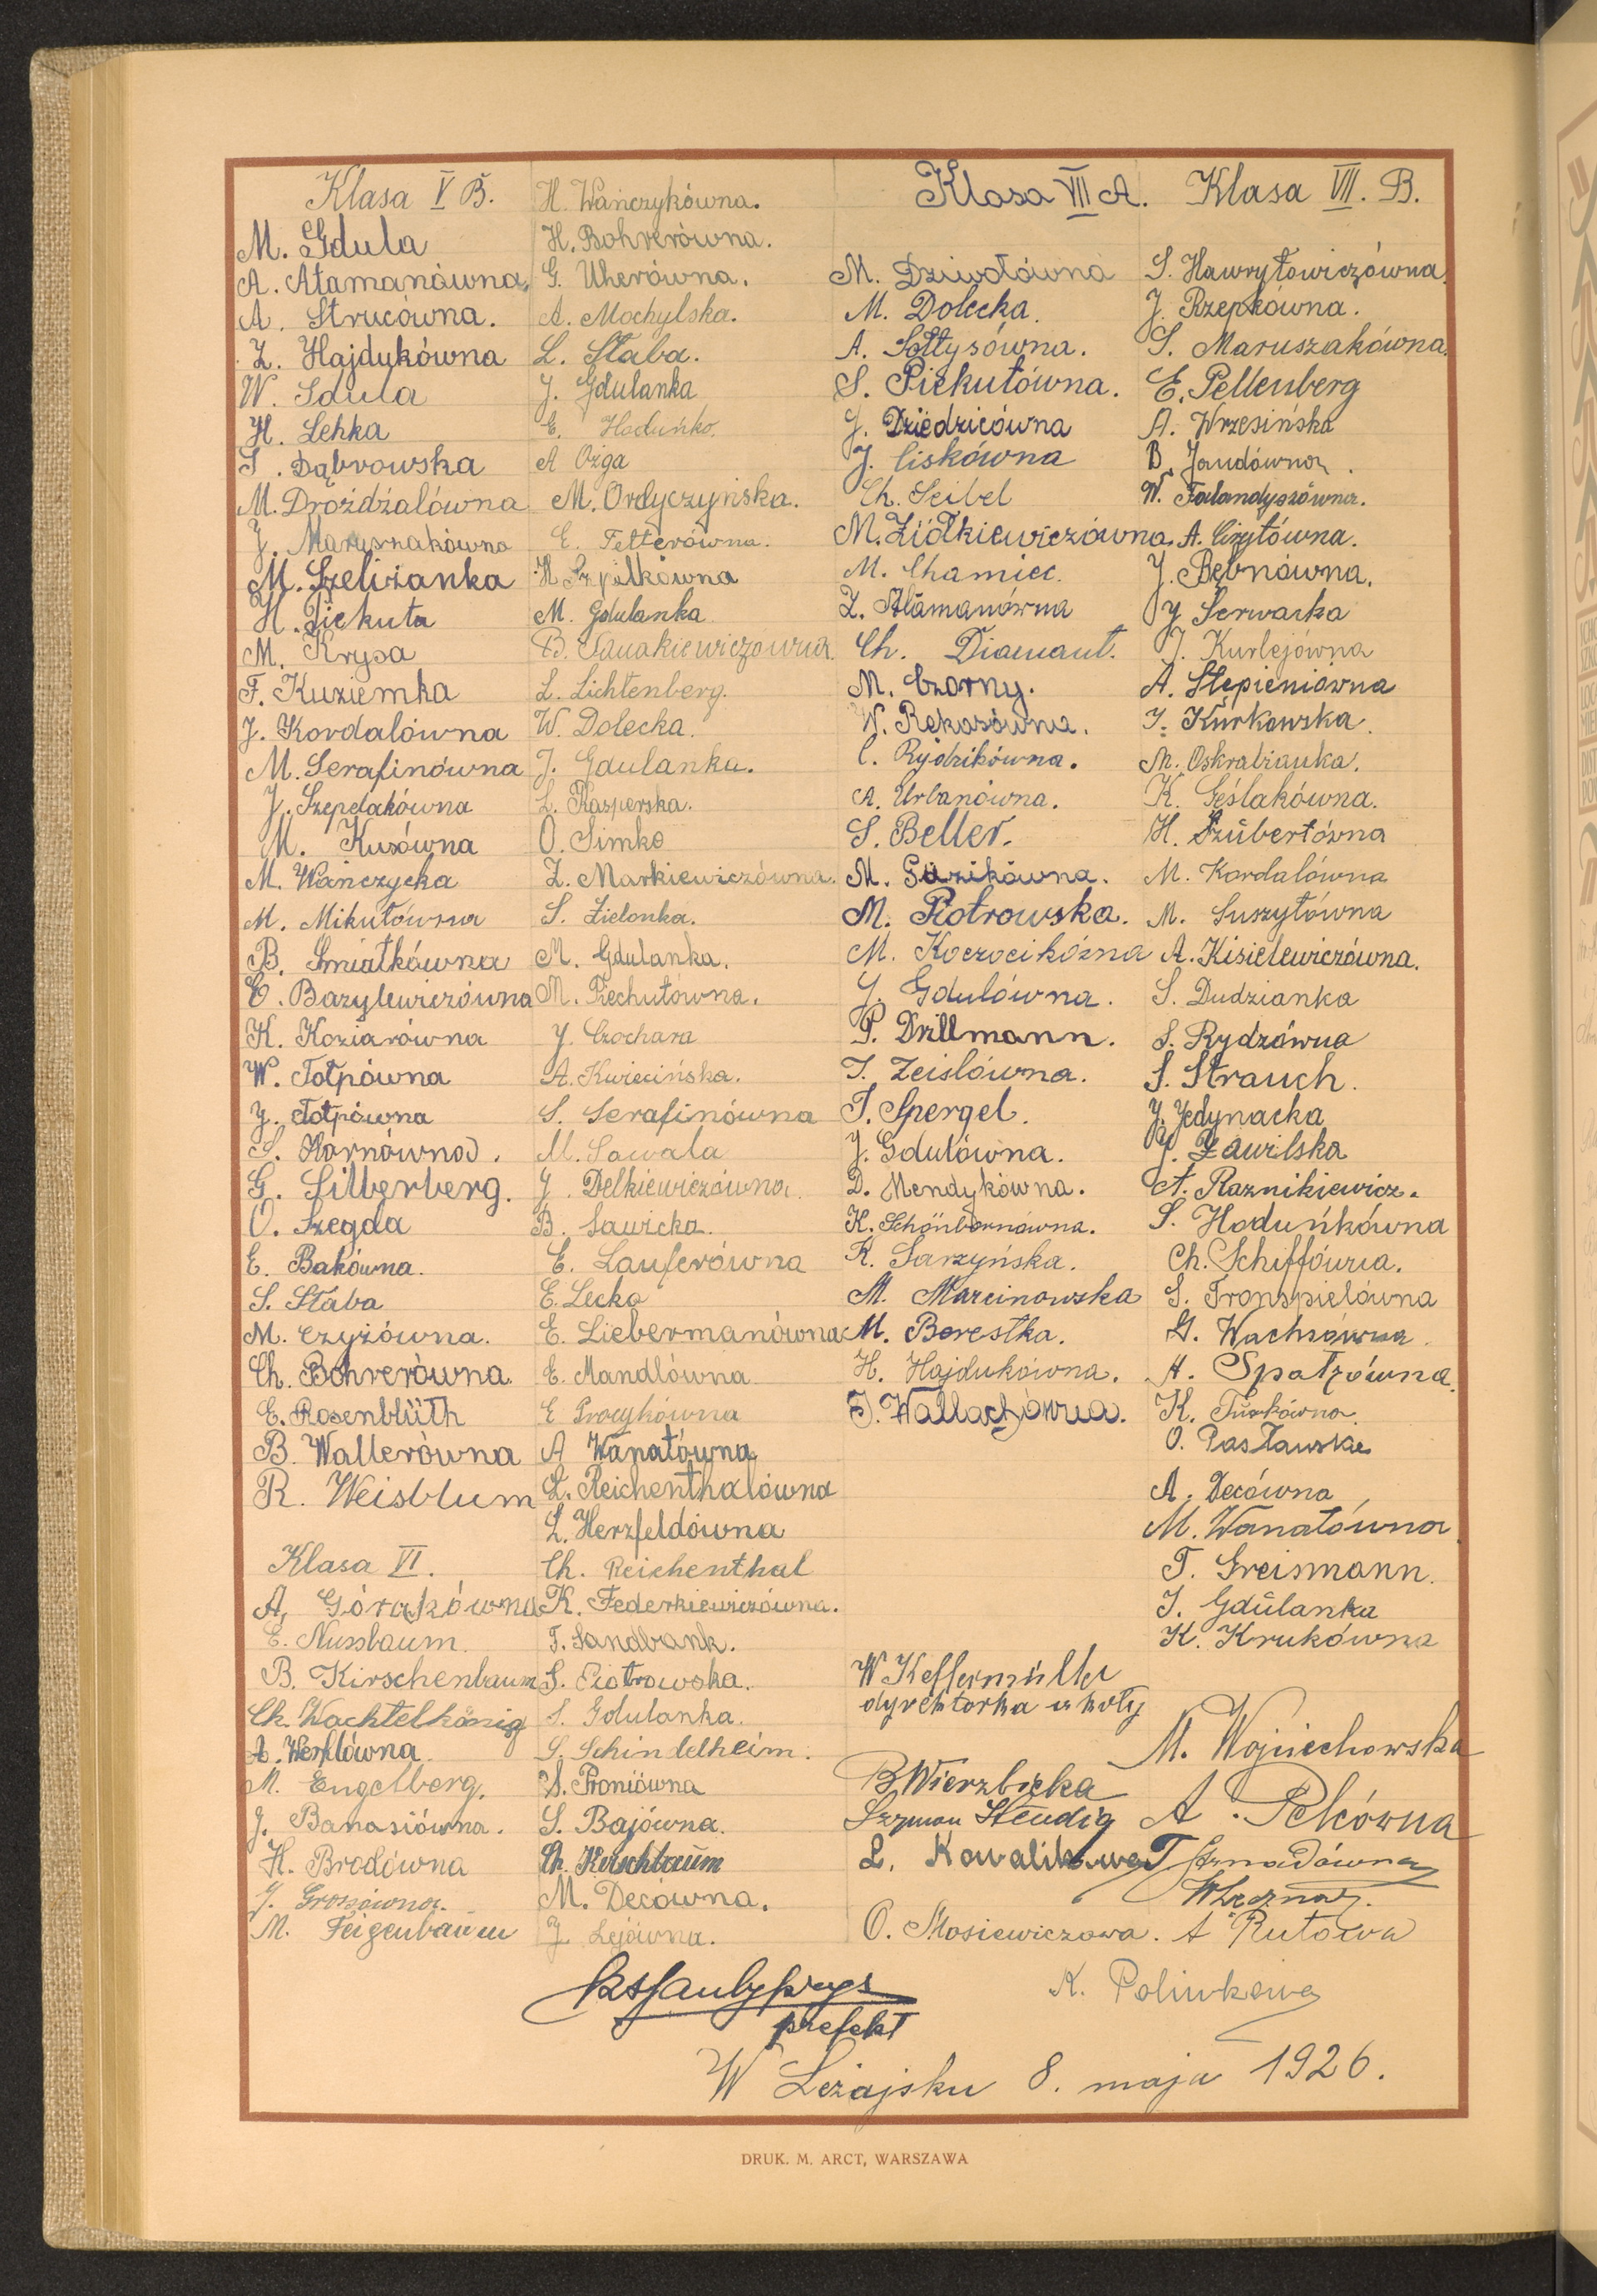 Klasa V B.
M. Gdula
A. Atamanówna.
A. Strucówna.
Z. Hajdukówna
W. Gdula
H. Lehka
S. Dąbrowska
M. Drożdżalówna
J. Maruszakówna
M. Szeliżanka
H. Piekuta
M. Krysa
F. Kuziemka
J. Kordalówna
M. Serafinówna
J. Szepelakówna
M. Kusówna
M. Wańczycka
M. Mikutówna
B. Śmiałkówna
E. Bazylewiczówna
K. Koziarówna
W. Tołpówna
J. Tołpówna
S. Hornówna.
G. Silberberg.
O. Szegda
E. Bakówna.
S. Słaba
M. Czyżówna.
Ch. Bohrerówna
E. Rosenblüth
B. Wallerówna
R. Weisblum
Klasa VI.
A. Górakówna
E. Nussbaum.
B. Kirschenbaum
Ch. Wachtelkönig
A. Werflówna
M. Engelberg.
J. Banasiówna.
H. Brodówna
J. Grossówna.
M. Feigenbaum
H. Wańczykówna.
H. Bohrerówna.
G. Uherówna.
A. Mochylska.
L. Słaba.
J. Gdulanka
E. Haduńko.
A Ożga
M. Ordyczyńska.
E. Fetterówna.
H Szpilkówna
M. Gdulanka
B. Tanakiewiczówna
L. Lichtenberg.
W. Dolecka.
J. Gdulanka.
L. Kasperska.
O. Simko
Z. Markiewiczówna.
S. Zielonka.
M. Gdulanka.
M. Piechutówna.
J. Czochara
A. Kwiecińska.
S. Serafinówna
M. Sawala
J. Delkiewiczówna.
B. Sawicka.
E. Lauferówna
E. Lecka
E. Liebermanówna
E. Mandlówna
E Procykówna
A Wanatówna
L. Reichenthalówna
L. Herzfeldówna
Ch. Reichenthal
K. Federkiewiczówna.
F. Sandbank.
S. Piotrowska.
S. Gdulanka.
S. Schindelheim.
S. Proniówna
S. Bajówna.
Ch. Kirschbaum
M. Decówna.
J Lejówna.
Klasa VII A.
M. Dziwotówna
M. Dolecka.
A. Sołtysówna.
S. Piekutówna.
J. Dziedzicówna
J. Ciskówna
Ch. Seibel
M. Ziółkiewiczówna.
M. Chamiec.
Z. Atamanówna
Ch. Diamant.
M. Czorny.
W. Rękasówna.
C. Rydzikówna.
A. Urbanówna.
S. Beller.
M. Guzikówna.
M. Piotrowska.
M. Koczocikówna
J. Gdulówna.
P. Drillmann.
T. Zeislówna.
T. Spergel.
J. Gdulówna.
D. Mendykówna.
K. Schönbornówna.
K. Sarzyńska.
M. Marcinowska
M. Borestka.
H. Hajdukówna.
J. Wallachówna.
Klasa VII. B.
S. Hawryłowiczówna.
J. Rzepkówna.
S. Maruszakówna.
E. Pellenberg
A. Wrzesińska
B. Jandówna.
W. Falandyszówna.
A. Czyżówna.
J. Bębnówna.
J Serwacka
J. Kurlejówna
A. Stepieniówna
J. Kurkowska.
M. Oskrabianka.
K. Geślakówna.
H. Szubertówna
M. Kordalówna
M. Suszytówna
A. Kisielewiczówna.
S. Dudzianka
S. Rydzówna
S. Strauch.
J. Jedynacka
J. Zawilska
A. Raznikiewicz.
S. Haduńkówna
Ch. Schiffówna.
S. Tronspielówna
G. Wachsówna.
A. Spatzówna.
K. Turkówna.
O. Pasławska
A. Decówna
M. Wanatówna
T. Greismann.
J. Gdulanka
K. Krukówna
W Keffermüller
dyrektorka szkoły
M. Wojciechowska
B. Wierzbicka
Szymon Steudig
A. Pelcówna
L. Kowalikowa
T Arnadówna
WŁęczna.
O. Mosiewiczowa.
A Rutowa
prefekt
K. Poliwkowa
W Leżajsku 8. maja 1926.
DRUK. M. ARCT, WARSZAWA